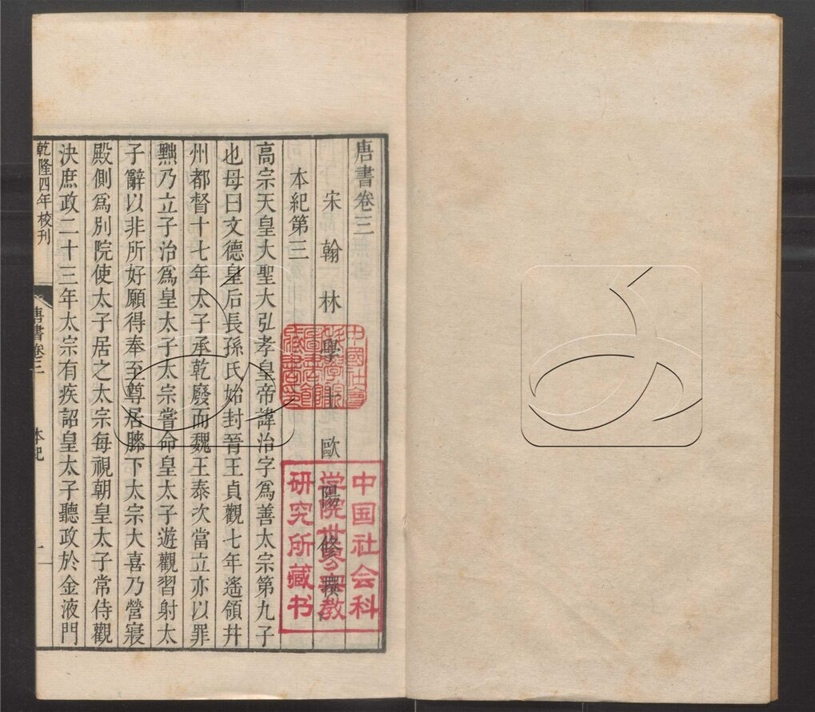 唐書卷三
宋翰林學士歐陽修撰
本紀第三
高宗天皇大聖大弘孝皇帝諱治字爲善太宗第九子
也母曰文德皇后長孫氏始封晉王貞觀七年遙領并
州都督十七年太子承乾廢而魏王泰次當立亦以罪
黜乃立子治爲皇太子太宗嘗命皇太子遊觀習射太
子辭以非所好願得奉至尊居膝下太宗大喜乃營寢
殿側爲別院使太子居之太宗每視朝皇太子常侍觀
決庶政二十三年太宗有疾詔皇太子聽政於金液門
乾隆四年校刊
唐書卷三
本紀
一
中國社會
中国社会科
学院世界宗教
研究所藏书